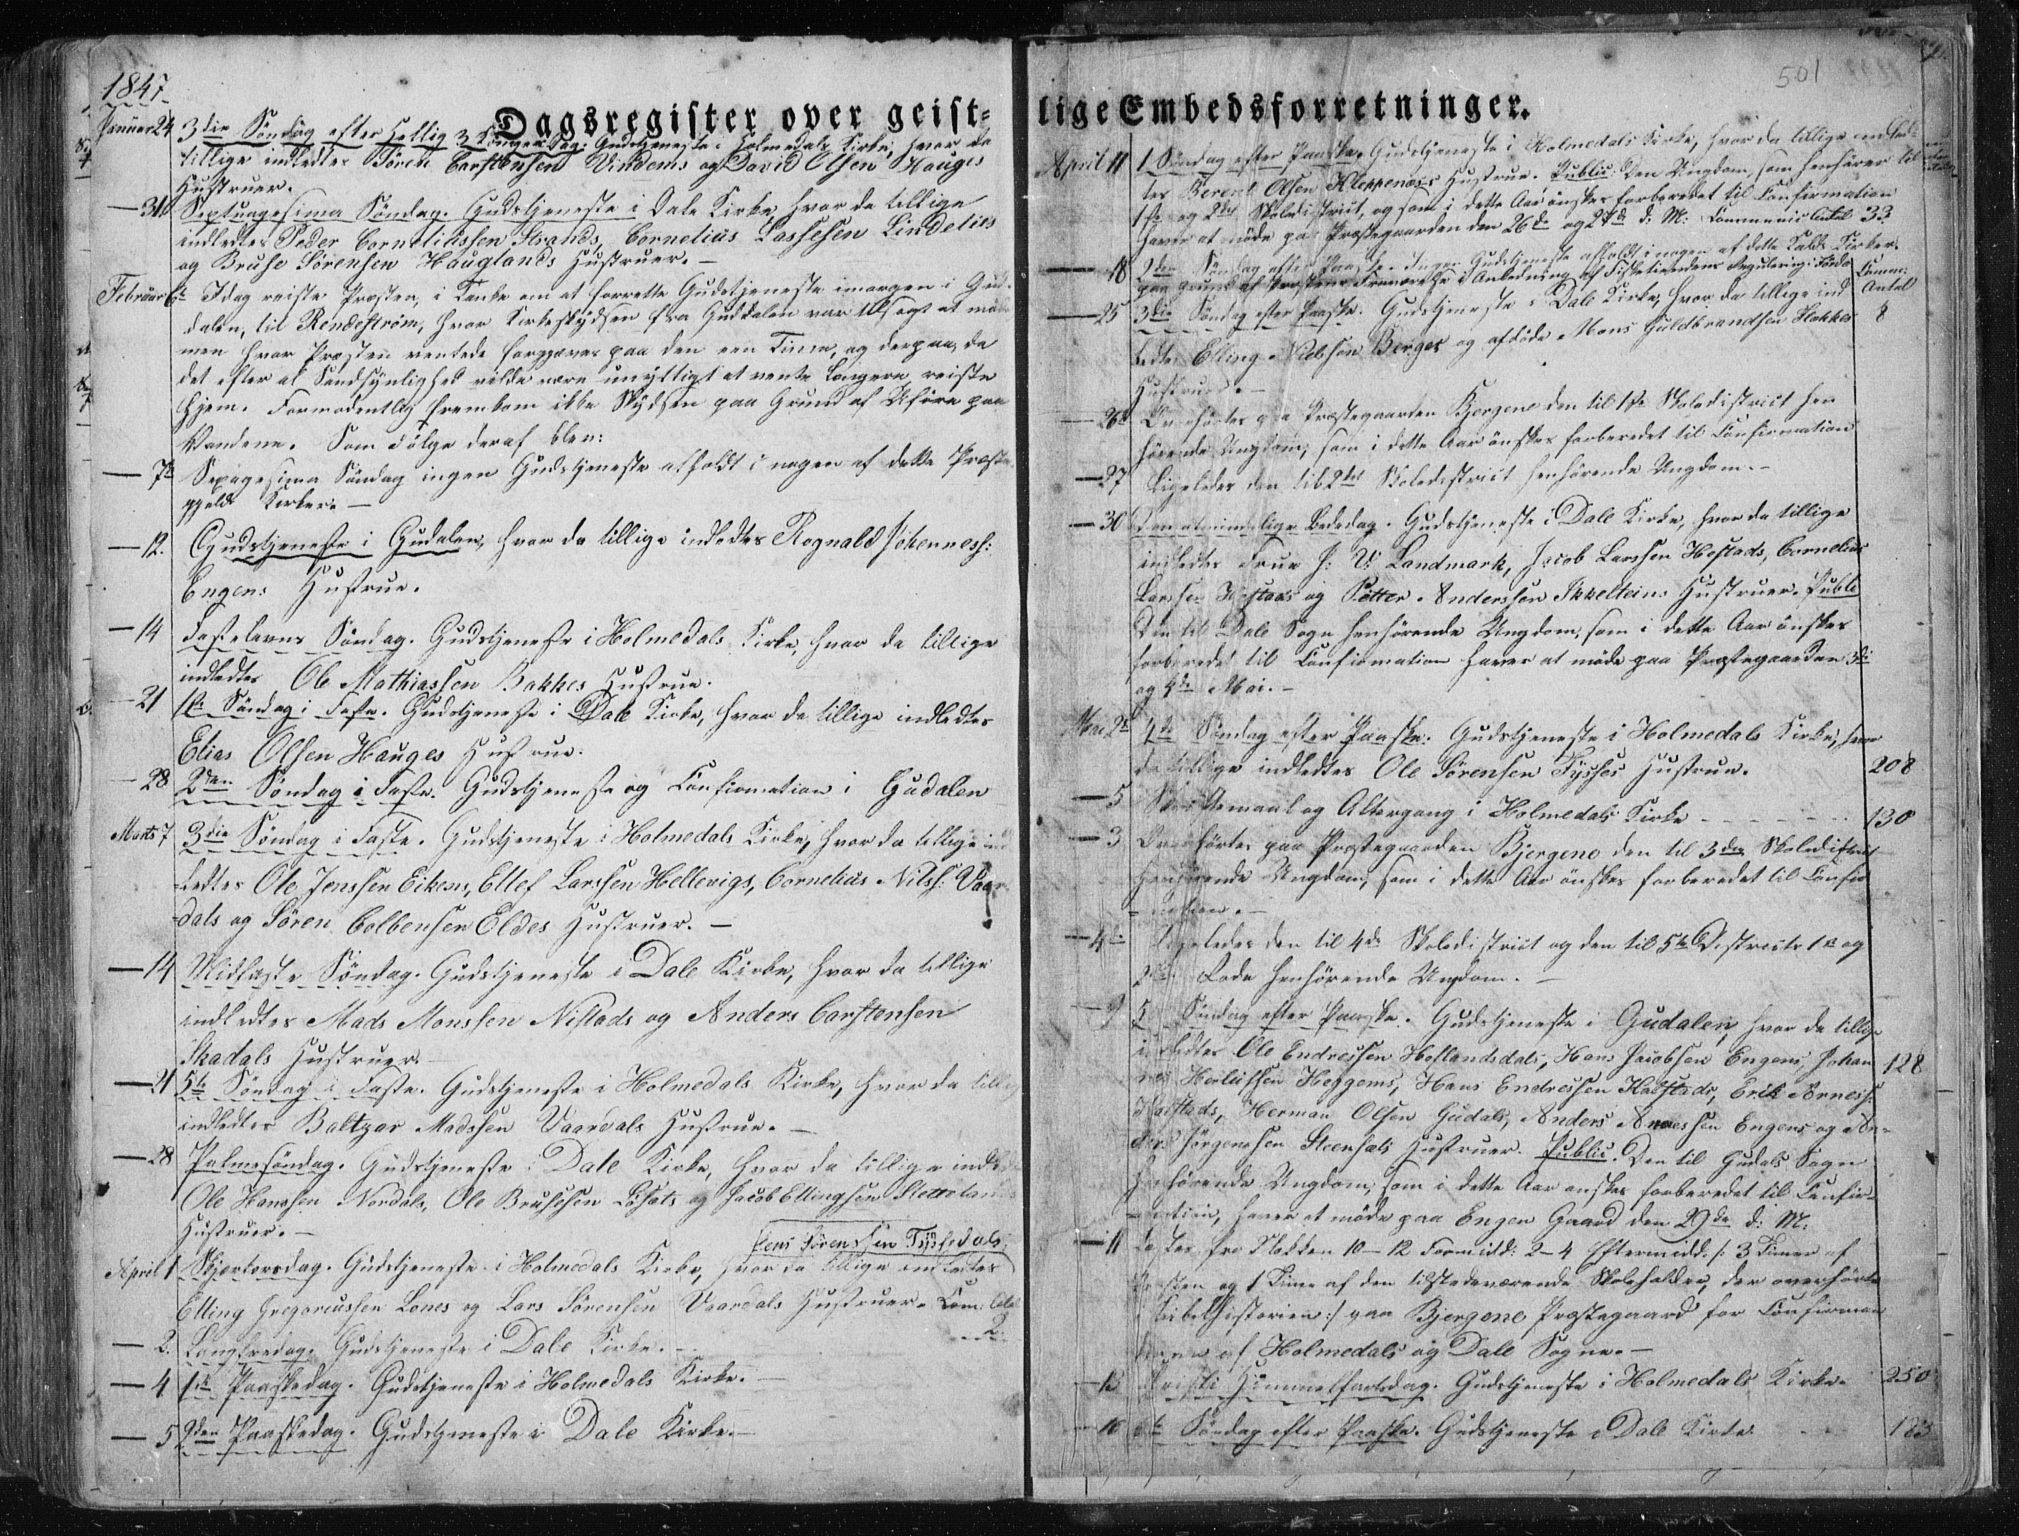 1847.
Dagsregister over geist=
Januar 24 3die Søndag efter Hellig 3 Konger Dag. Gudstjeneste i Holmedals Kirke, hvor da
tillige indledtes Sören Carstensen Vindems og David Olsen Hauges
Hustruer.
— 31 Septuagesima Søndag. Gudstjeneste i Dale Kirke hvor da tillige
indledtes Peder Corneliussen Strands, Cornelius Lassesen Lindelies
og Bruse Sörensen Hauglands Hustruer. —
Februar 6te Idag reiste Præsten, i Tanke om at forrette Gudstjeneste imorgen i Gu=
dalen, til Rendestrøm, hvor Kirkeskydsen fra Guddalen var tilsagt at møde
men hvor Præsten ventede forgjæves paa den een Time, og derpaa, da
det efter al Sandsynlighed vilde være unyttigt at vente længere reiste
hjem. Formodentlig fremkom ikke Skydsen paa Grund af Uføre paa
Vandene. Som Følge deraf blev:
— 7de Sexagesima Søndag ingen Gudstjeneste afholdt i nogen af dette Præste
gjelds Kirker. —
— 12. Gudstjeneste i Gudalen, hvor da tillige indledtes Rognald Johanness:
Engens Hustrue.
— 14 Fastelavns Søndag. Gudstjeneste i Holmedals Kirke, hvor da tillige
indledtes Ole Mathiassen Bakkes Hustrue.
— 21 1ste Søndag i Faste. Gudstjeneste i Dale Kirke, hvor da tillige indledtes
Elias Olsen Hauges Hustrue.
— 28 2den Søndag i Faste. Gudstjeneste og Confirmation i Gudalen
Marts 7 3die Søndag i Faste. Gudstjeneste i Holmedals Kirke, hvor da tillige ind
ledtes Ole Jenssen Eikens, Ellef Larssen Hellevigs, Cornelius Nilss: Vaar
=dals og Sören Colbensen Eldes Hustruer. —
— 14 Midfaste Søndag. Gudstjeneste i Dale Kirke, hvor da tillige
indledtes Mads Monssen Nistads og Anders Carstensen
Skadals Hustruer.
— 21 5te Søndag i Faste. Gudstjeneste i Holmedals Kirke, hvor da tillige
indledtes Baltzar Madssen Vaardals Hustrue. —
— 28 Palmesøndag. Gudstjeneste i Dale Kirke, hvor da tillige indledtes
Ole Hanssen Nordals, Ole Brussen og Jacob Ellingsen
Hustruer. —
Jens Sörensen Tyssedals
April 1 Skjertorsdag. Gudstjeneste i Holmedals Kirke, hvor da tillige indledtes
Elling Gregoriussen Lones og Lars Sörensen Vaardals Hustruer. Com:
— 2. Langfredag. Gudstjeneste i Dale Kirke. —
— 4 1ste Paaskedag. Gudstjeneste i Holmedals Kirke. —
— 5 2den Paaskedag. Gudstjeneste i Dale Kirke. —
501
lige Embedsforretninger.
April 11 1 Søndag efter Paaske. Gudstjeneste i Holmedals Kirke, hvor da tillige indled=
tes Berent Olsen Kleppenæs Hustrue. Public: Den Ungdom, som henhører til
1ste og 2det Skoledistrict, og som i dette Aar ønskes forberedet til Confirmation
haver at møde paa Præstegaarden den 26de og 27de d: M: Communic: Antal 33
— 18 2den Søndag efter Paaske. Ingen Gudstjeneste afholdt i nogen af dette Kalds Kirker
paa Grund af Præstens Fraværelse i Anledning af Regulering i Førde
Commu:
Antal
— 25 3die Søndag efter Paaske. Gudstjeneste i Dale Kirke, hvor da tillige ind 8
ledtes Elling Nielsen Berges og afdøde Mons Guldbrandsen Hakkes
Hustruer. —
— 26de Overhørtes paa Præstegaarden Bjergene den til 1ste Skoledistrict hen
hørende Ungdom, som i dette Aar ønskes forberedet til Confirmation
— 27 Ligeledes den til 2det Skoledistrict henhørende Ungdom. —
— 30 Den almindelige Bededag. Gudstjeneste i Dale Kirke, hvor da tillige
indledtes Frue J: V: Landmark, Jacob Larssen Hestads, Cornelius
Larssen og Petter Anderssen Hustruer. Public
Den til Dale Sogn henhørende Ungdom, som i dette Aar ønskes
forberedet til Confirmation haver at møde paa Præstegaarden 3die
og 4de Mai. —
Mai 2de 4de Søndag efter Paaske. Gudstjeneste i Holmedals Kirke, hvor
da tillige indledtes Ole Sörensen Tysses Hustrue. 208
— 5 Skriftemaal og Altergang i Holmedals Kirke - - - - - 130
— 3 Overhørtes paa Præstegaarden Bjergene den til 3die Skoledistrict
henhørende Ungdom, som i dette Aar ønskes forberedet til Confir
mation. —
— 4de Ligeledes den til 4de Skoledistrict og den til 5te Districts 1ste og
2den Rode henhørende Ungdom. —
— 9 5 Søndag efter Paaske. Gudstjeneste i Gudalen, hvor da tillige
indledtes Ole Endressen Hollandsdals, Hans Jacobsen Engens, Johan 128
nes Heggems, Hans Endressen Hatstads, Erik Arness:
Hatstads, Herman Olsen Gudals, Anders Arnessen Engens og An=
ders Jörgenssen Steensæts Hustruer. Public. Den til Gudals Sogn
henhørende Ungdom, som i dette Aar ønskes forberedet til Confir=
mation, haver at møde paa Engen Gaard den 29de d: M:
— 11 Klokken 10–12 Formidd: 2–4 Eftermidd: /: 3 Timer af
Præsten og 1 Time af den tilstedeværende Skoleholder, der overhørte
Bibelhistorien :/ paa Bjergene Præstegaard for Confirman
derne af Holmedals og Dale Sogne. —
— 13 Kristi Himmelfartsdag. Gudstjeneste i Holmedals Kirke. 250
— 16 6te Søndag efter Paaske. Gudstjeneste i Dale Kirke 123